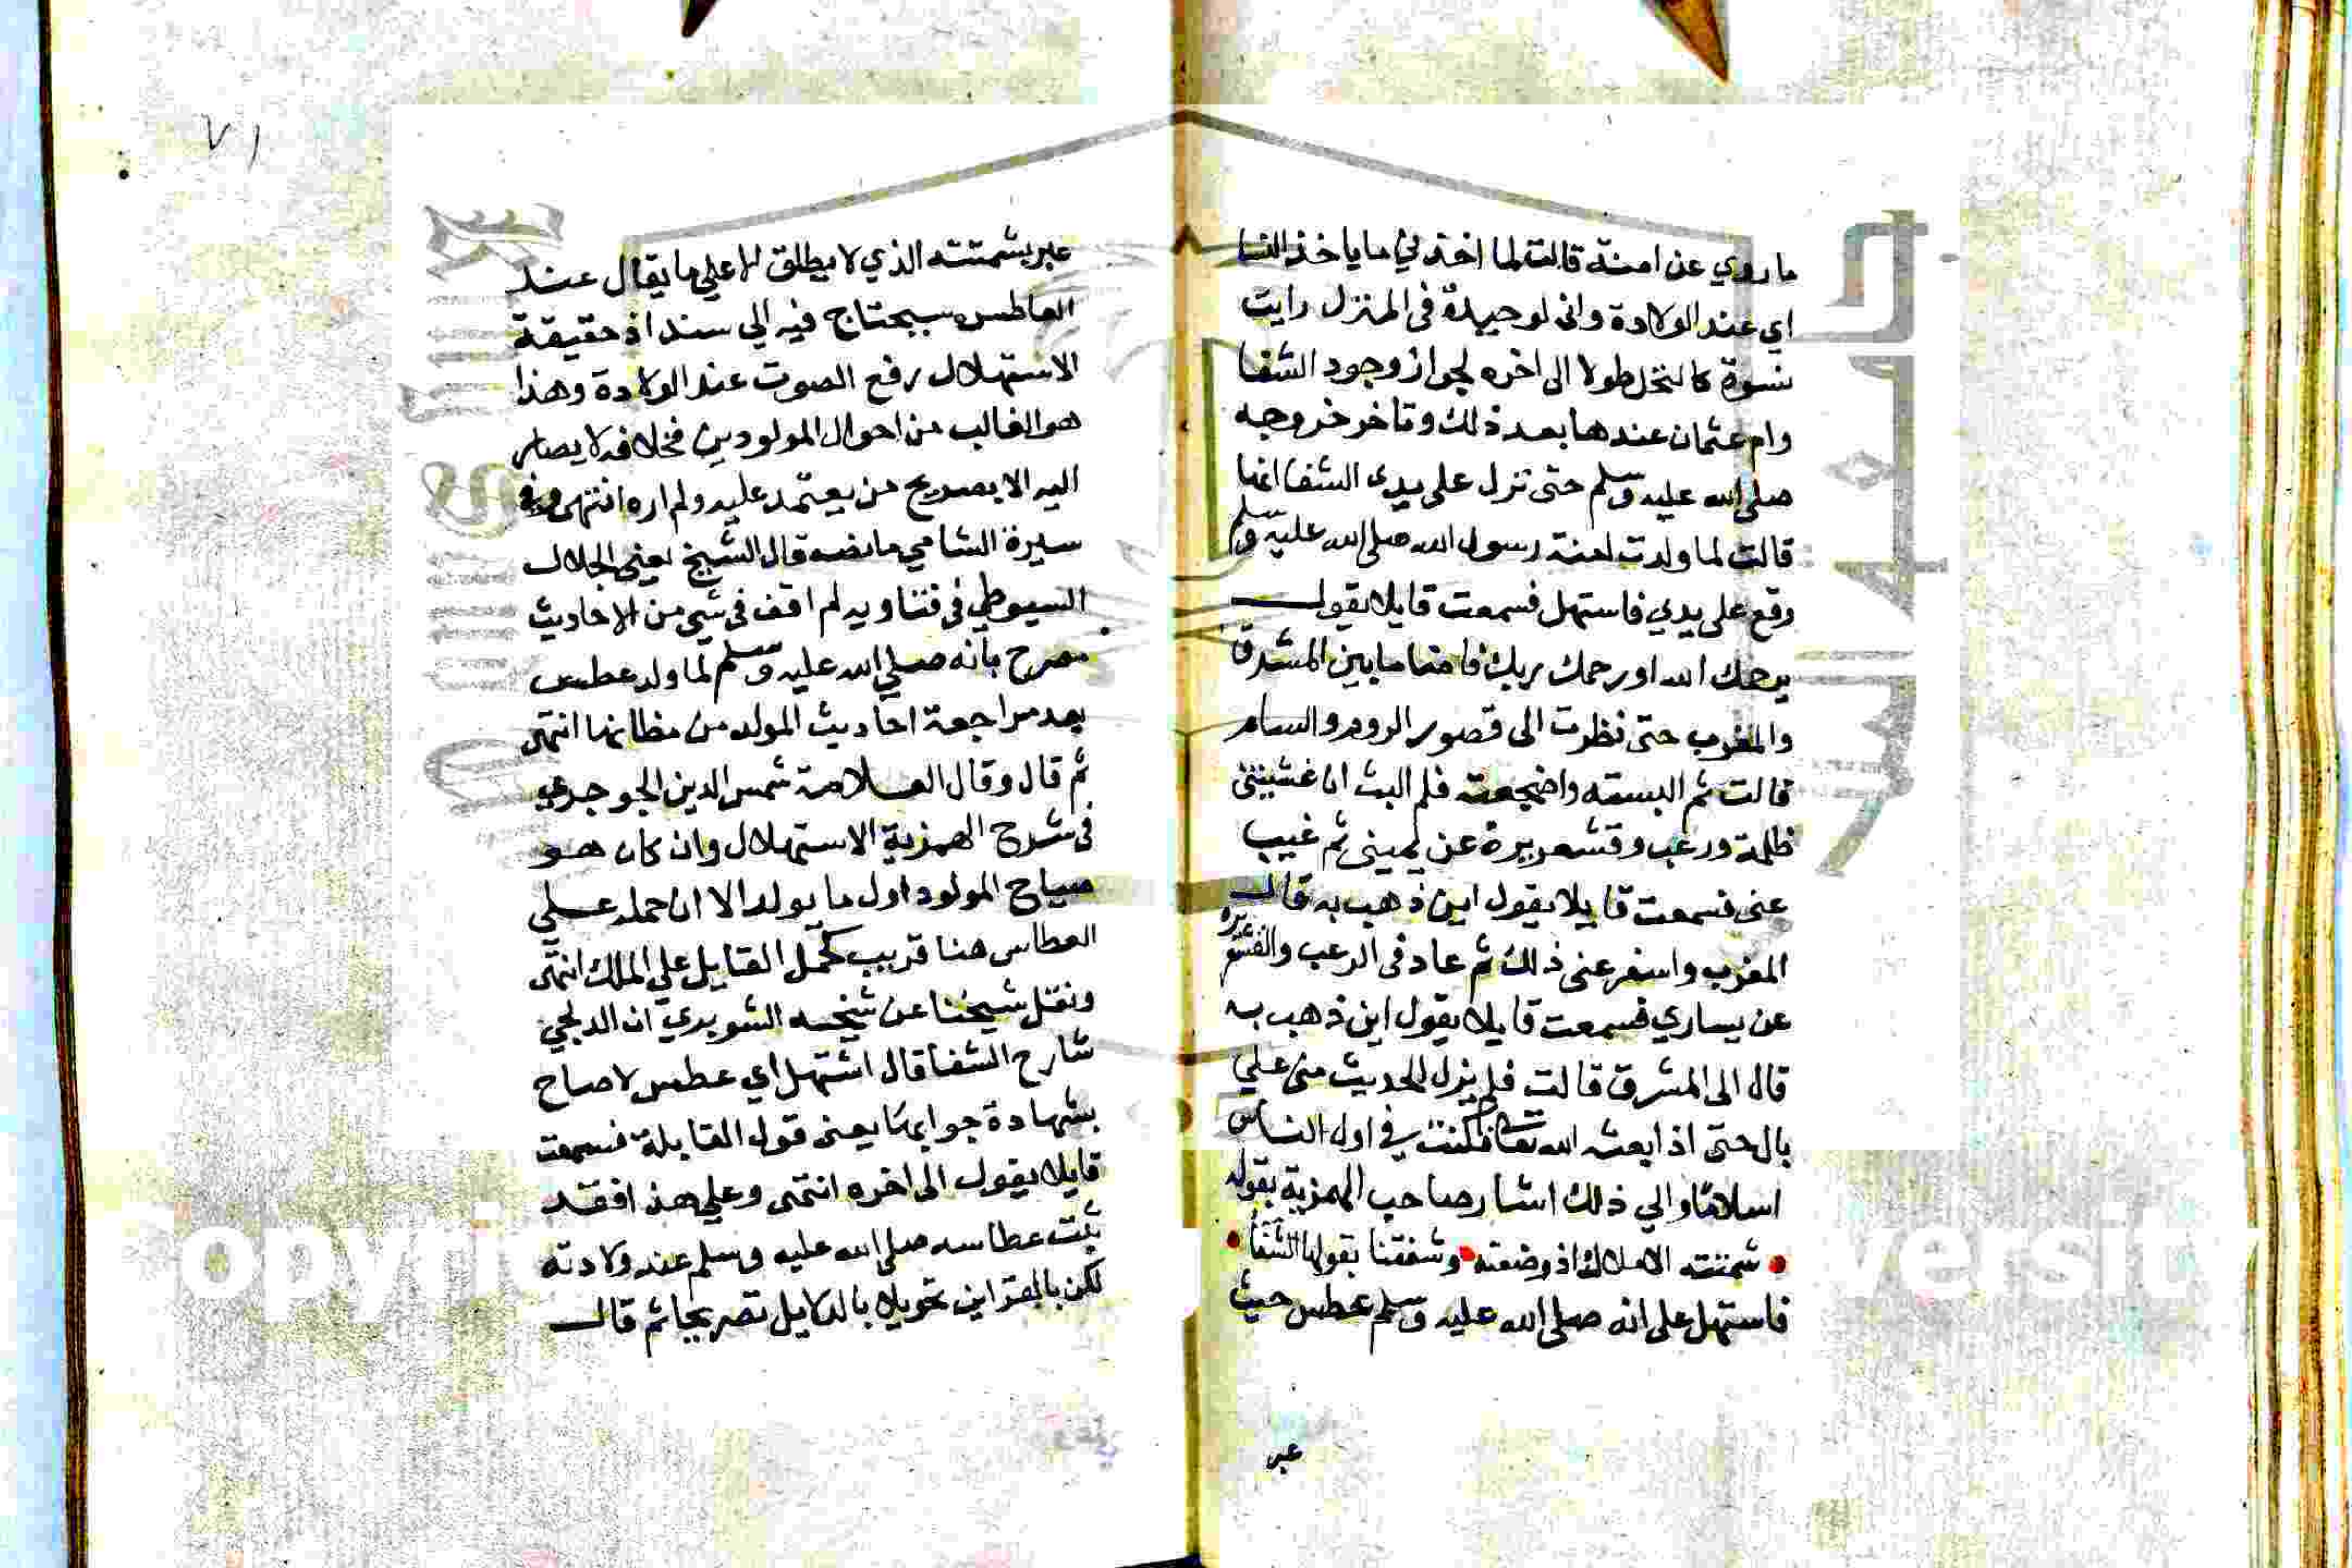 ما روي عن امنة قالت لما اخذني ما ياخذ النسا
اي عند الولادة واني لوحيدة في المنزل رايت
نسوة كالنخل طولا الى اخره لجواز وجود الشفا
وام عثمان عندها بعد ذلك وتاخر خروجه
صلى الله عليه وسلم حتى نزل على يدي الشفا انها
قالت لما ولدت امنة رسول الله صلى الله عليه وسلم
وقع على يدي فاستهل فسمعت قايلا يقول
يرحمك الله او رحمك ربك فاضا ما بين المشرق
والمغرب حتى نظرت الى قصور الروم والسام
قالت ثم البسته واضجعته فلم البث ان غشيتني
ظلمة ورعب وقشعريرة عن يميني ثم غيب
عني فسمعت قايلا يقول اين ذهب به قال
المغرب واسفر عني ذلك ثم عاد في الرعب والقشعريرة
عن يساري فسمعت قايلا يقول اين ذهب به
قال الى المشرق قالت فلم يزل الحديث مني علي
بال حتى اذ ابعثه الله تعا فكنت في اول الناس
اسلاما والي ذلك اشار صاحب الهمزية بقوله
شمتته الاملاك اذ وضعته وشفتنا بقولها الشفا
فاستهل على انه صلى الله عليه وسلم عطس حيث
عبر
٧١
عبر بشمتته الذي لا يطلق الا علي ما يقال عند
العاطس يحتاج فيه الي سند اذ حقيقة
الاستهلال رفع الصوت عند الولادة وهذا
هو الغالب من احوال المولودين فخلافه لا يصار
اليه الا بصريح من يعتمد عليه ولم اره انتهى وفي
سيرة الشامي ما نصه قال الشيخ يعني الجلال
السيوطي في فتاويه لم اقف في شي من الاحاديث
مصرح بانه صلي الله عليه وسلم لما ولد عطس
بعد مراجعة احاديث المولد من مظانها انتهى
ثم قال وقال العلامة شمس الدين الجوجري
في شرح الهمزية الاستهلال وان كان هو
صياح المولود اول ما يولد الا ان حمله علي
العطاس هنا قريب كحمل القايل علي الملك انتهى
ونقل شيخنا عن شيخه الشوبري ان الدلجي
شارح الشفا قال استهل اي عطس لا صاح
بشهادة جوابها يعني قول القابلة فسمعت
قايلا يقول الى اخره انتهى وعلي هذا فقد
ثبت عطاسه صلى الله عليه وسلم عند ولادته
لكن بالقراين تحويلا بالدلايل تصريحا ثم قال